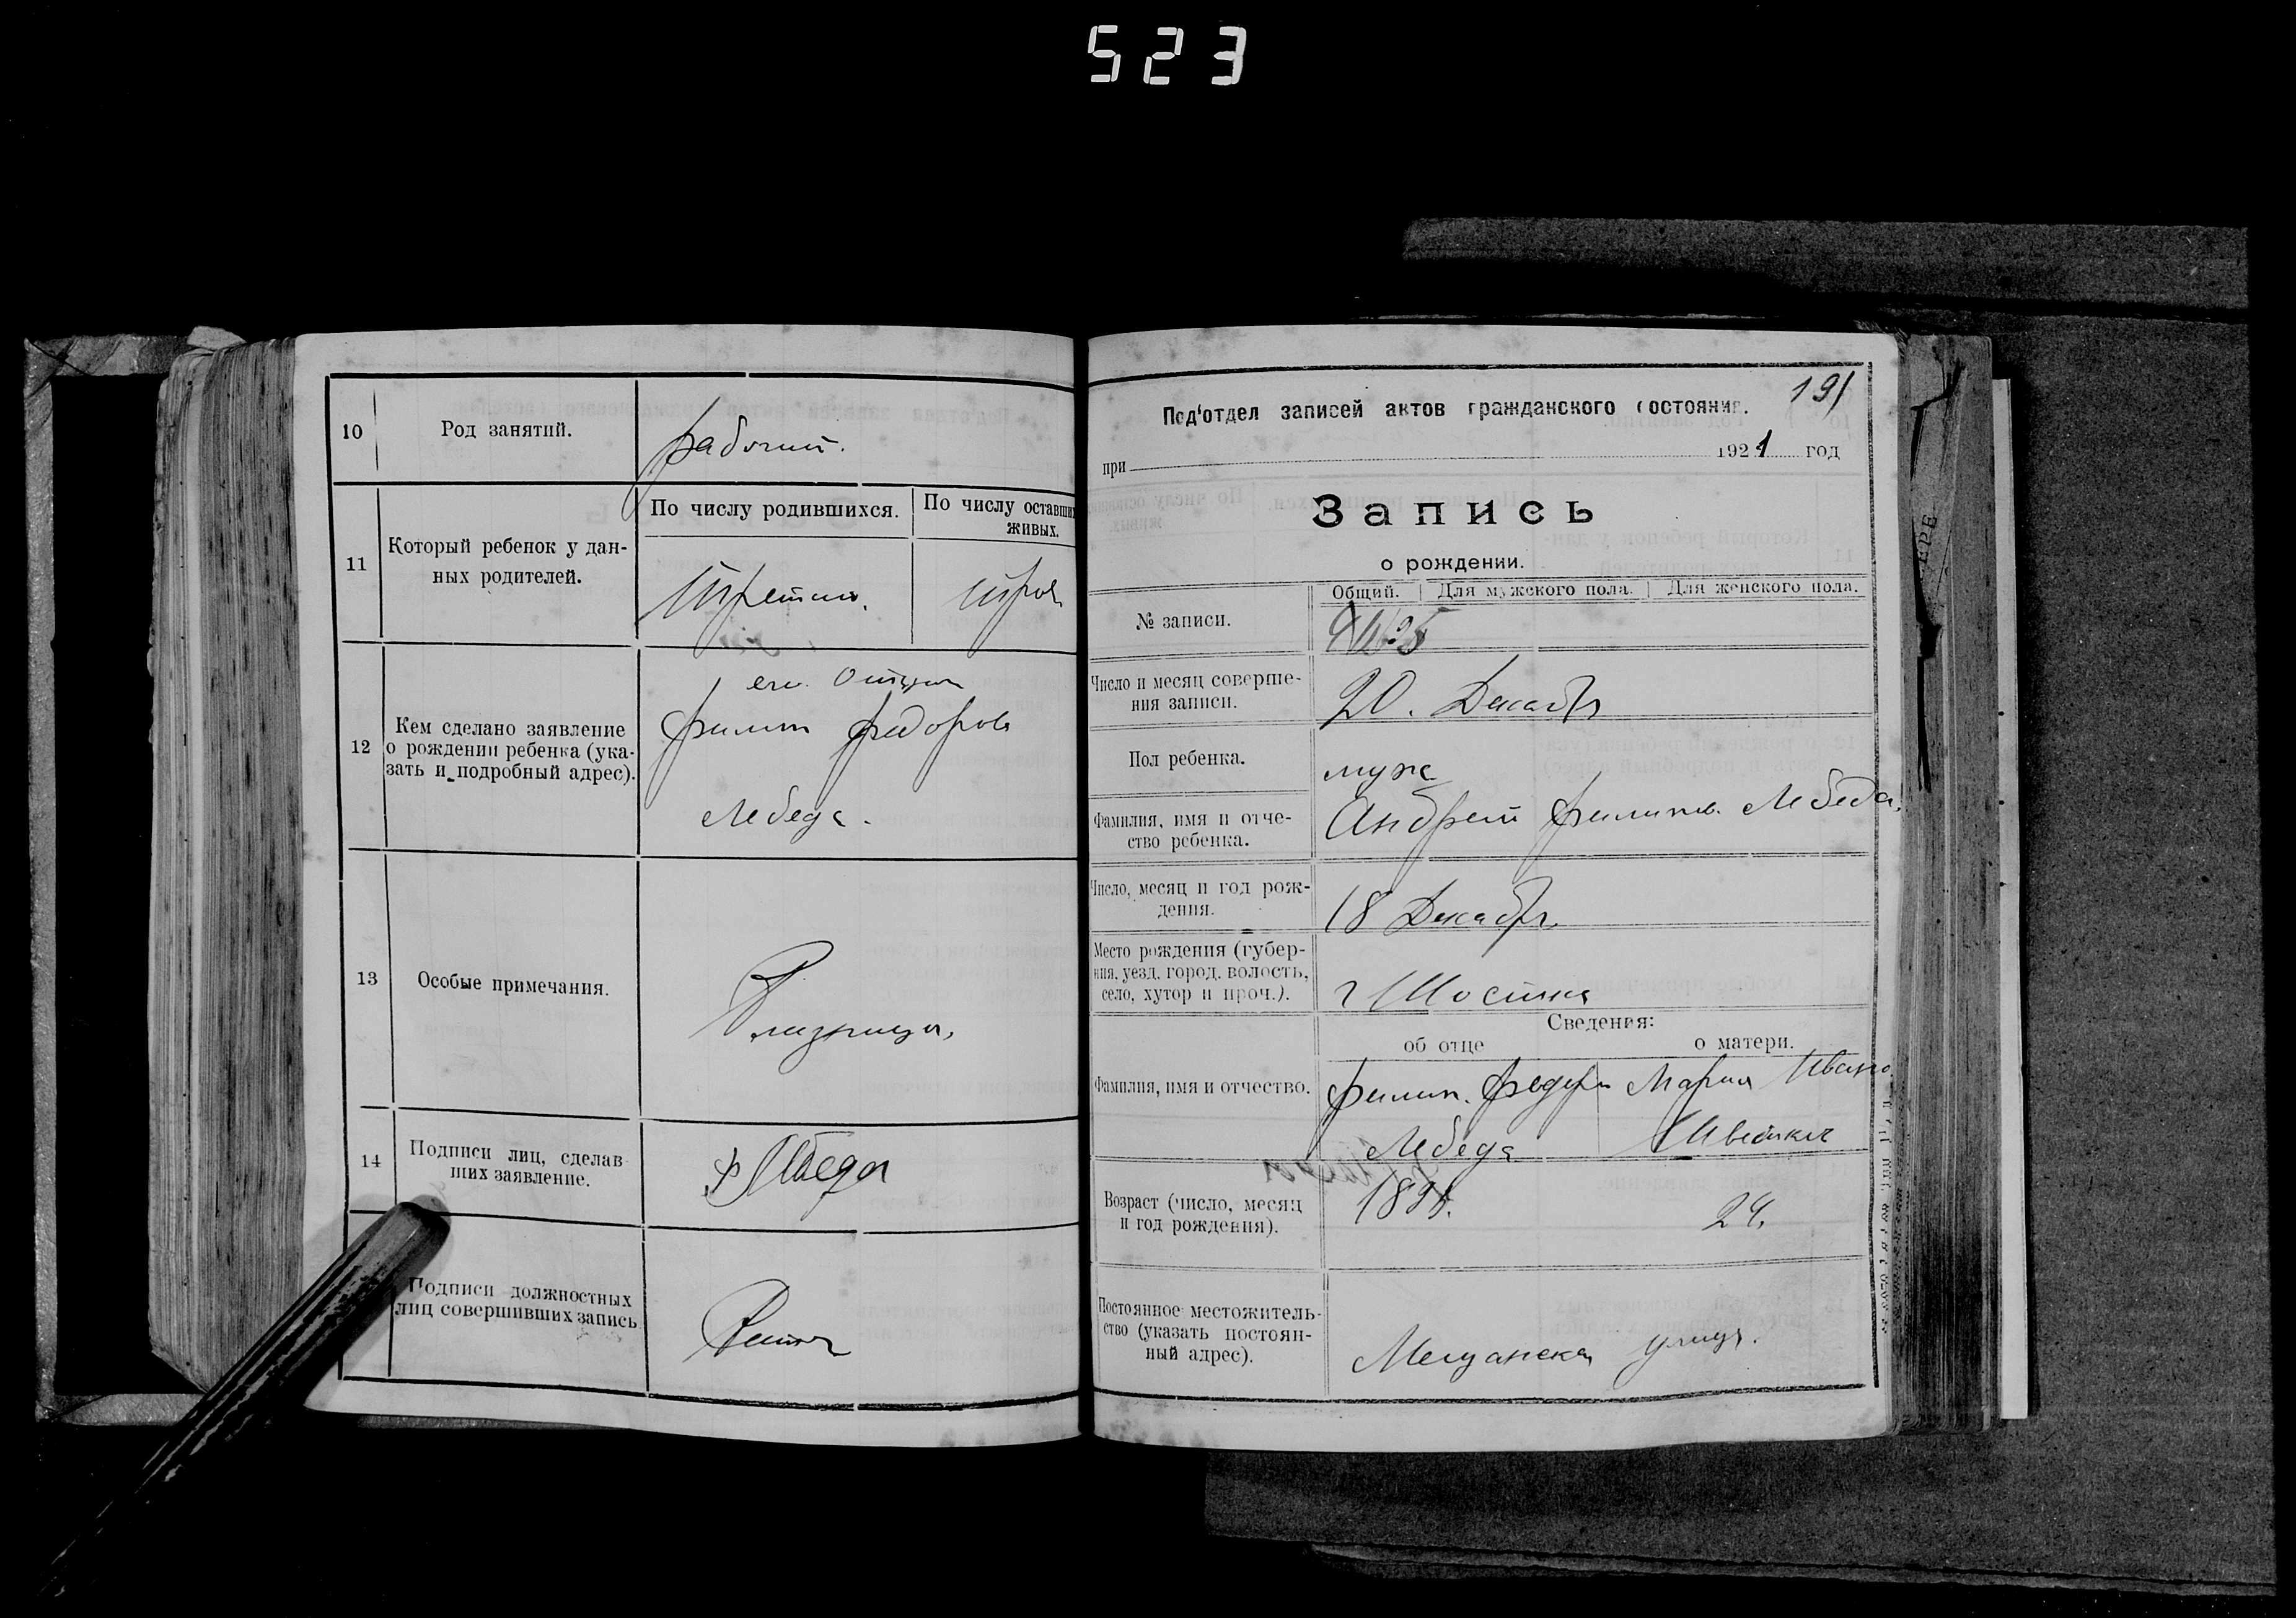 523
10 Род занятий. рабочий.
11 Который ребенок у дан-
ных родителей.
По числу родившихся. По числу оставших
живых.
Третий.
12 Кем сделано заявление
о рождении ребенка (ука-
зать и подробный адрес).
Филип Федоров
Лебеда.
13 Особые примечания.
Близнецы,
14 Подписи лиц, сделав-
ших заявление.
Ф Лебеда
Подписи должностных
лиц совершивших запись
191
Под'отдел записей актов гражданского состояния.
при 1921 год
Запись
о рождении.
Общий. Для мужского пола. Для женского пола.
№ записи.
Число и месяц соверше-
ния записи.
20. Декабр
Пол ребенка.
муж
Фамилия, имя и отче-
ство ребенка.
Андрей Филипов. Лебеда.
Число, месяц и год рож-
дения.
18 Декабр.
Место рождения (губер-
ния, уезд, город, волость,
село, хутор и проч.).
г Шостка
Сведения:
об отце о матери.
Фамилия, имя и отчество.
Филип. Федор Мария Ивано
Лебеда
Возраст (число, месяц
и год рождения).
24.
Постоянное местожитель-
ство (указать постоян-
ный адрес).
Мещанска улица.